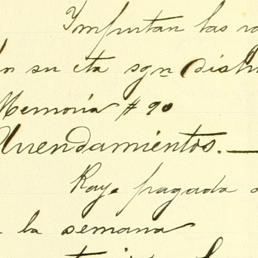 Importan las
n su cta sgn distr
Memoria # 90
Arrendamientos.—
Raya pagada
la semana